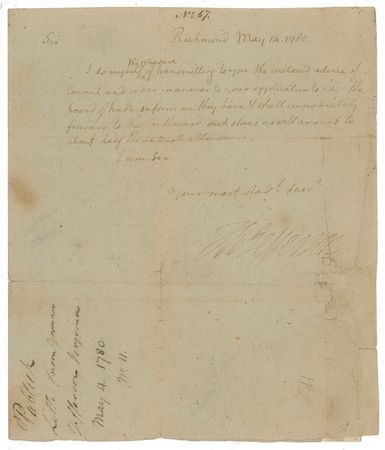 No. 67.
Richmond May 14. 1780
Sir
the pleasure
I do myself of transmitting to you the inclosed advice of
Council and order in answer to your application to us. the
board of trade inform me they have & shall immediately
forward to the such stores as will amount to
about half the annual
I am Sir
Your most obedt. servt.
Th: Jefferson
Public
Letter from Governor
Jefferson Virginia
May 4. 1780
No. 11.